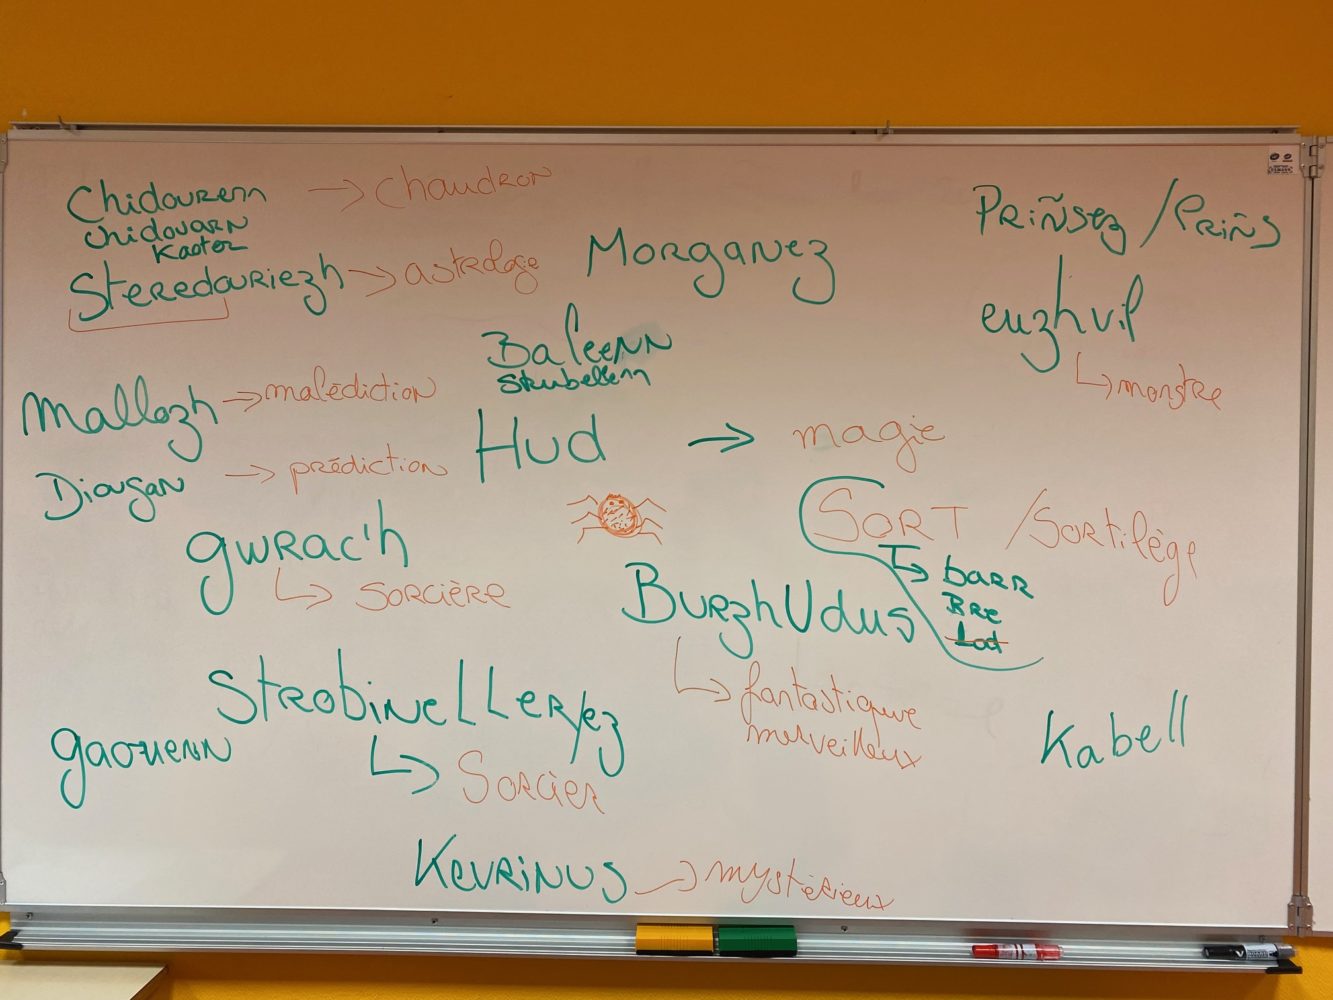 Chidourenn → chaudron
chidouarn
kaoter
Steredouriezh → astrologie
Morganez
Priñsez / Priñs
euzhvil
↳ monstre
Baleenn
Skubellenn
Mallozh → malédiction
Hud → magie
Diougan → prédiction
gwrac'h
↳ sorcière
SORT / Sortilège
↳ barr
Bre
Lod
BurzhUdus
↳ fantastique
merveilleux
StrobineLLer/ez
↳ Sorcier
gaouenn
Kabell
Kevrinus → mystérieux